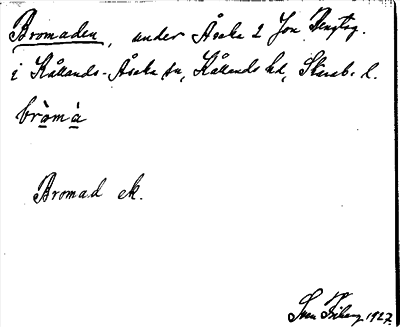 Bromaden, under Åseka 2 Jon Bengtsg.
i Kållands-Åseka sn, Kållands hd, Skarab. l.
bròmà
Bromad ek.
Sven 1927.